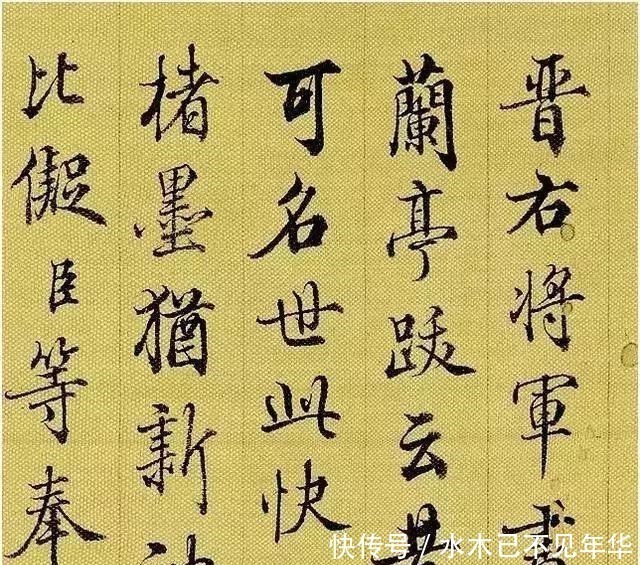 晋右将軍
蘭亭跋云
可名世此快
楮墨猶新
比儗臣等奉
快传号 / 水木已不见年华